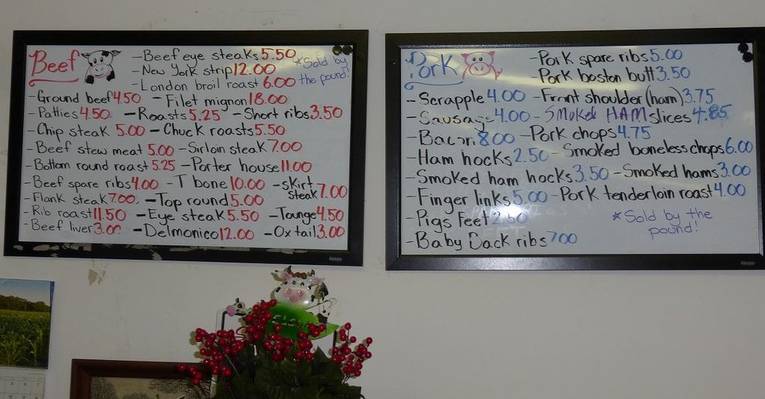 Beef
- Beef eye steaks 5.50
- New York strip 12.00
- London broil roast 6.00
*Sold by the pound!
- Ground beef 4.50 - Filet mignon 18.00
- Patties 4.50 - Roasts 5.25 - Short ribs 3.50
- Chip steak 5.00 - Chuck roasts 5.50
- Beef stew meat 5.00 - Sirloin steak 7.00
- Bottom round roast 5.25 - Porter house 11.00
- Beef spare ribs 4.00 - T bone 10.00 - skirt steak 7.00
- Flank steak 7.00. - Top round 5.00
- Rib roast 11.50 - Eye steak 5.50 - Tounge 4.50
- Beef liver 3.00 - Delmonico 12.00 - Ox tail 3.00
Pork
- Pork spare ribs 5.00
- Pork boston butt 3.50
- Scrapple 4.00 - Front shoulder (ham) 3.75
- Sausage 4.00 - SMOKED HAM slices 4.85
- Bacon 8.00 - Pork chops 4.75
- Ham hocks 2.50 - Smoked boneless chops 6.00
- Smoked ham hocks 3.50 - Smoked hams 3.00
- Finger links 5.00 - Pork tenderloin roast 4.00
- Pigs feet 2.50
- Baby Back ribs 7.00
*Sold by the pound!